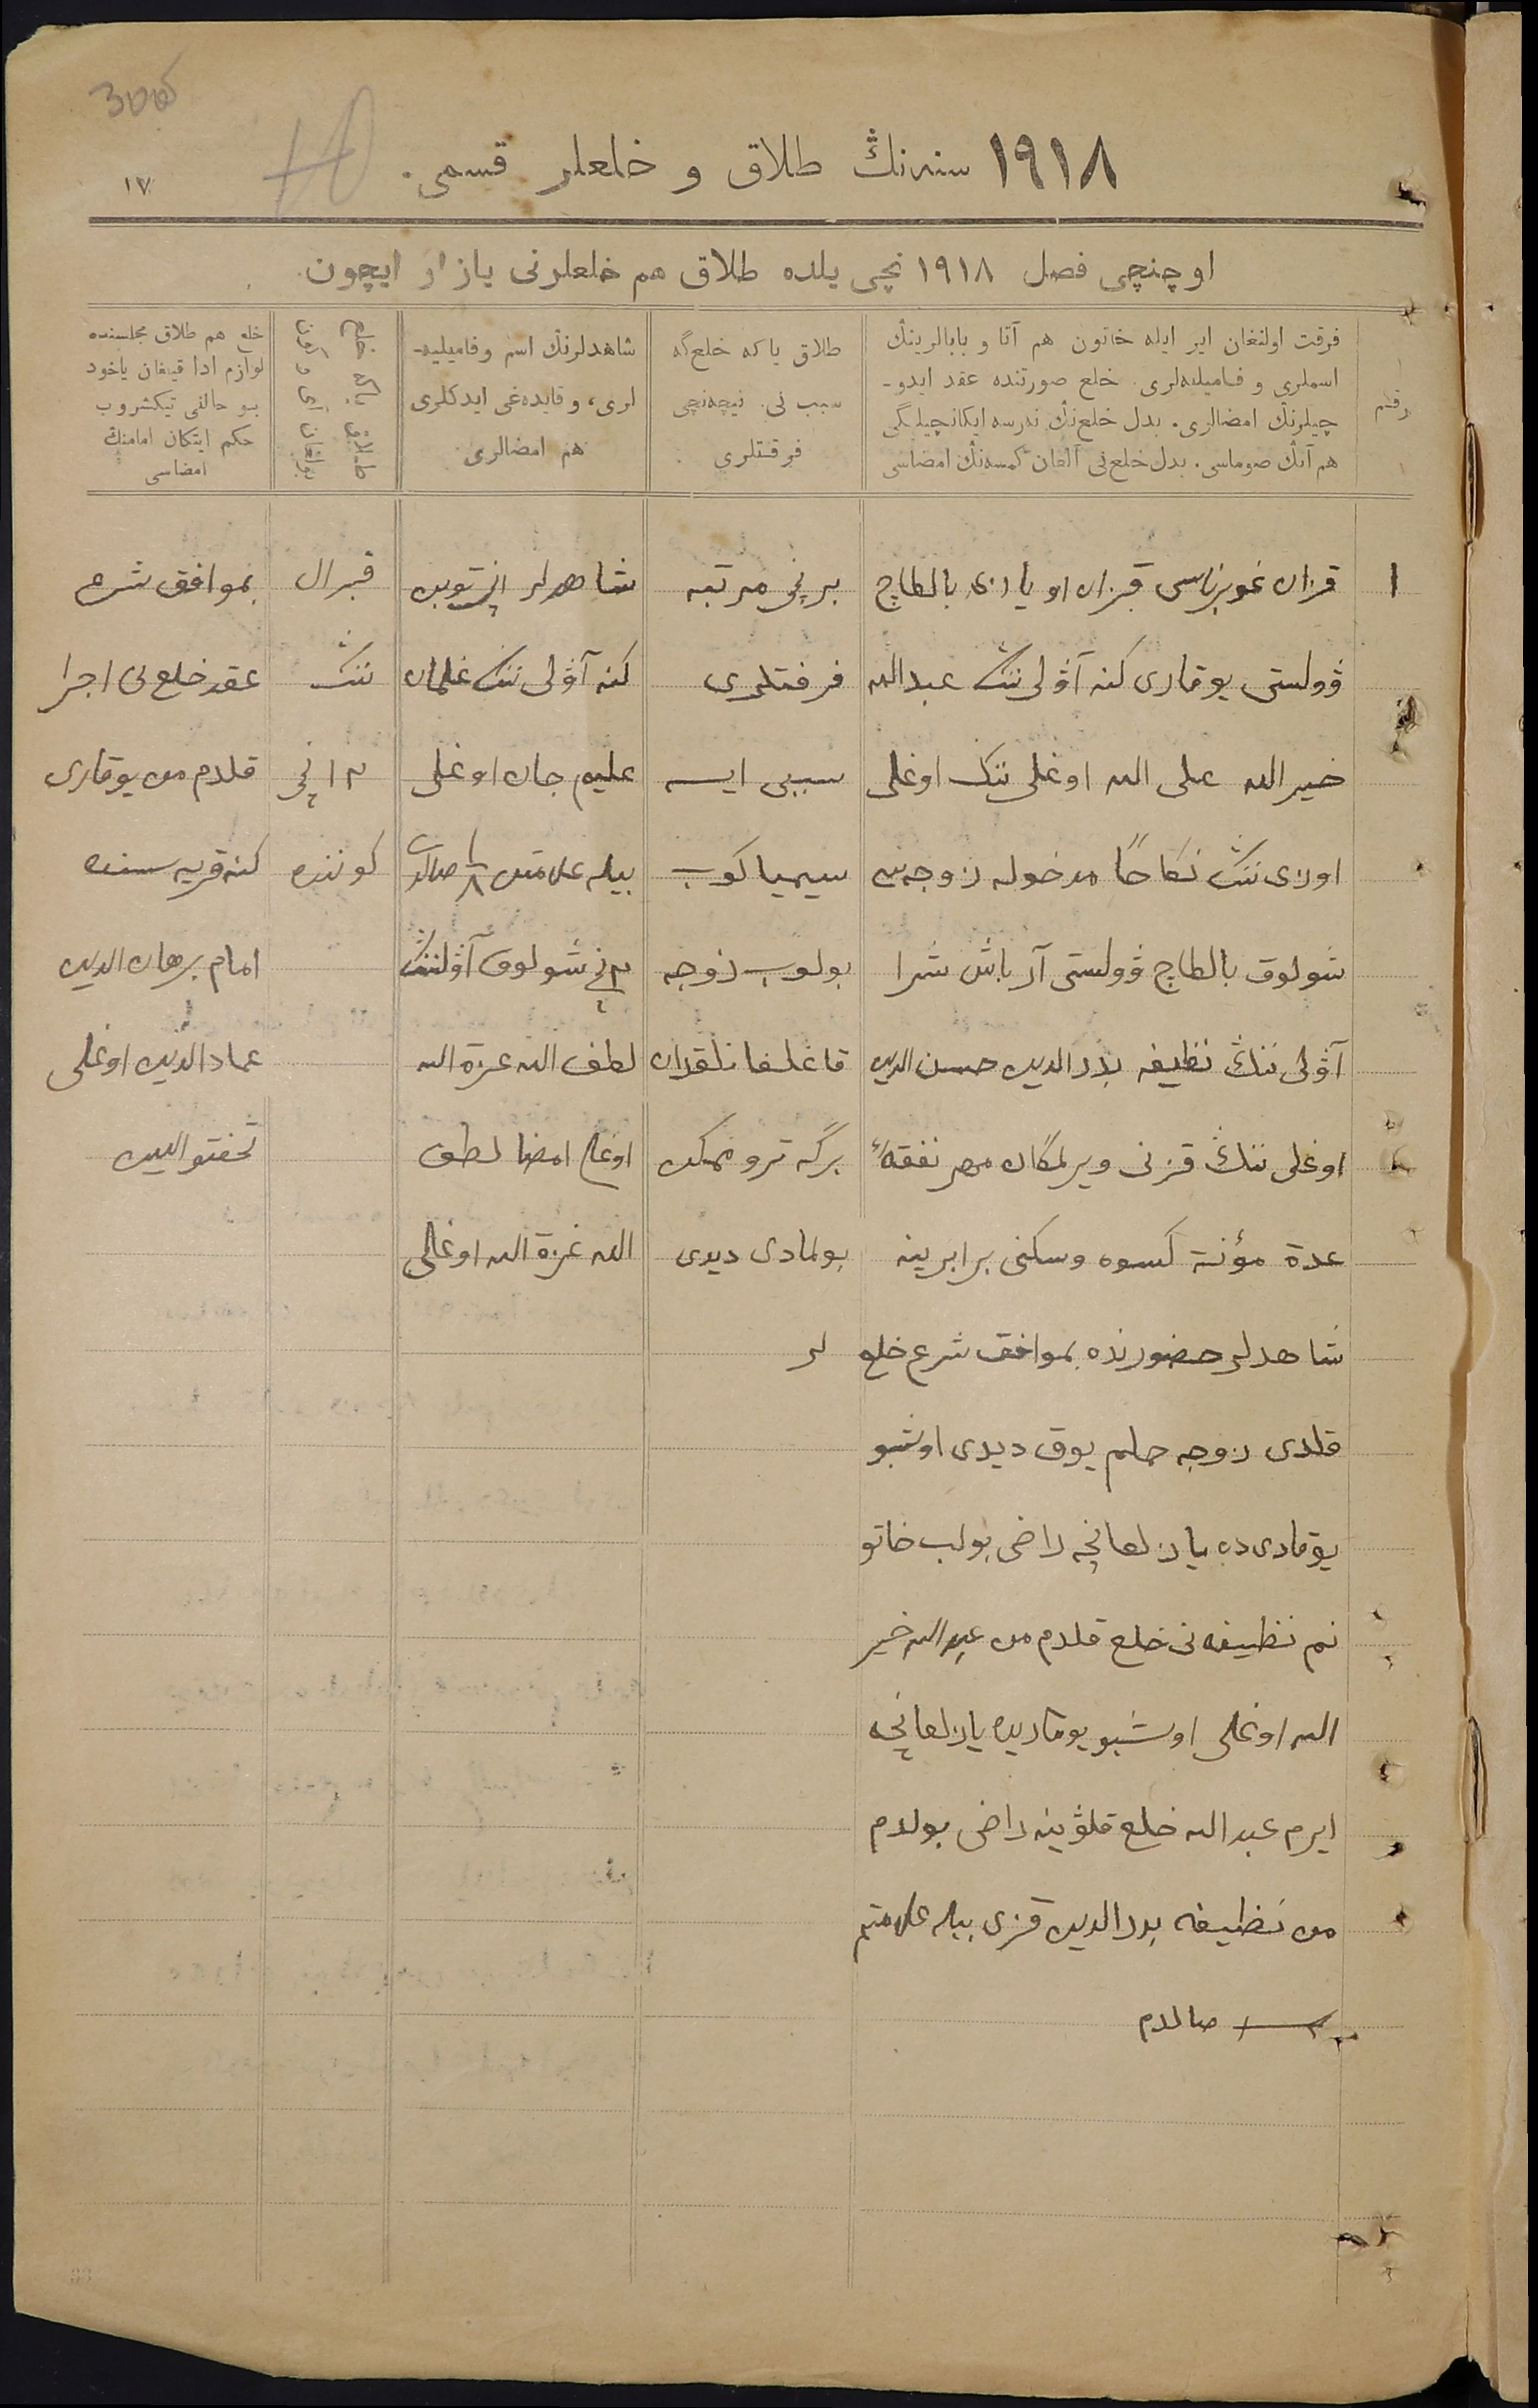 300
۱۹۱۸ سنه‌نڭ طلاق و خلعلر قسمی.
۱۷
اوچنچی فصل ۱۹۱۸ نچی یلده طلاق هم خلعلرنی یازار ایچون.
رقم
فرقت اولنغان ایر ایله خاتون هم آتا و بابالرینڭ
اسملری و فامیلیه‌لری. خلع صورتنده عقد ایدو-
چیلرنڭ امضالری. بدل خلع‌نڭ ندرسه ایکانچیلیگی
هم آنڭ صوماسی. بدل خلع‌نی آلغان کمسه‌نڭ امضاسی
طلاق یا که خلع‌گه
سبب نی. نیچه‌نچی
فرقتلری.
شاهدلرنڭ اسم و فامیلیه-
لری، و قایده‌غی ایدکلری
هم امضالری
خلع یاکه طلاق
خلع هم طلاق مجلسنده
لوازم ادا قیلغان یاخود
بو حالنی تیکشروب
حکم ایتکان امامنڭ
امضاسی
۱
قزان غوبیرناسی قزان اویازی بالطاچ
ڤولستی یوقاری کنه آوْلی ننڭ عبدالله
خیرالله علی الله اوغلی ننڭ اوغلی
اوزی ننڭ نکاحًا مدخوله زوجه‌سی
شولوق بالطاچ ڤولستی آرباش شرا
آوْلی ننڭ نظیفه بدرالدین حسن الدین
اوغلی ننڭ قزنی ویرلمگان مهر نفقهٔ
عدة مؤنة کسوه وسکنی برابرینه
شاهدلر حضورنده بموافق شرع خلع
قلدی زوجه حملم یوق دیدی اوشبو
یوقاری ده یازلعانچه راضی بولب خاتو
نم نظیفه نی خلع قلدم من عبدالله خیر
الله اوغلی اوشبو یوقاریده یازلعانچه
ایرم عبدالله خلع قلوْینه راضی بولدم
من نظیفه بدرالدین قزی بیله علامتم
صالدم
برنچی مرتبه
فرقتلری
سببی ایسه
سیمیا کوب
بولوب زوجه
قاغلغانلقدان
برگه ترو ممکن
بولمادی دیدی
لر
شاهدلر
کنه آوْلی ننڭ غلمان
علیم جان اوغلی
بیله علامتن صالدی
۲نچی شولوق آوْلننڭ
لطف الله عزة الله
اوغلی امضا لطف
الله عزة الله اوغلی
فبرال
ننڭ
کوننده
بموافق شرع
عقد خلع نی اجرا
قلدم من یوقاری
کنه قریه سنده
امام برهان الدین
عماد الدین اوغلی